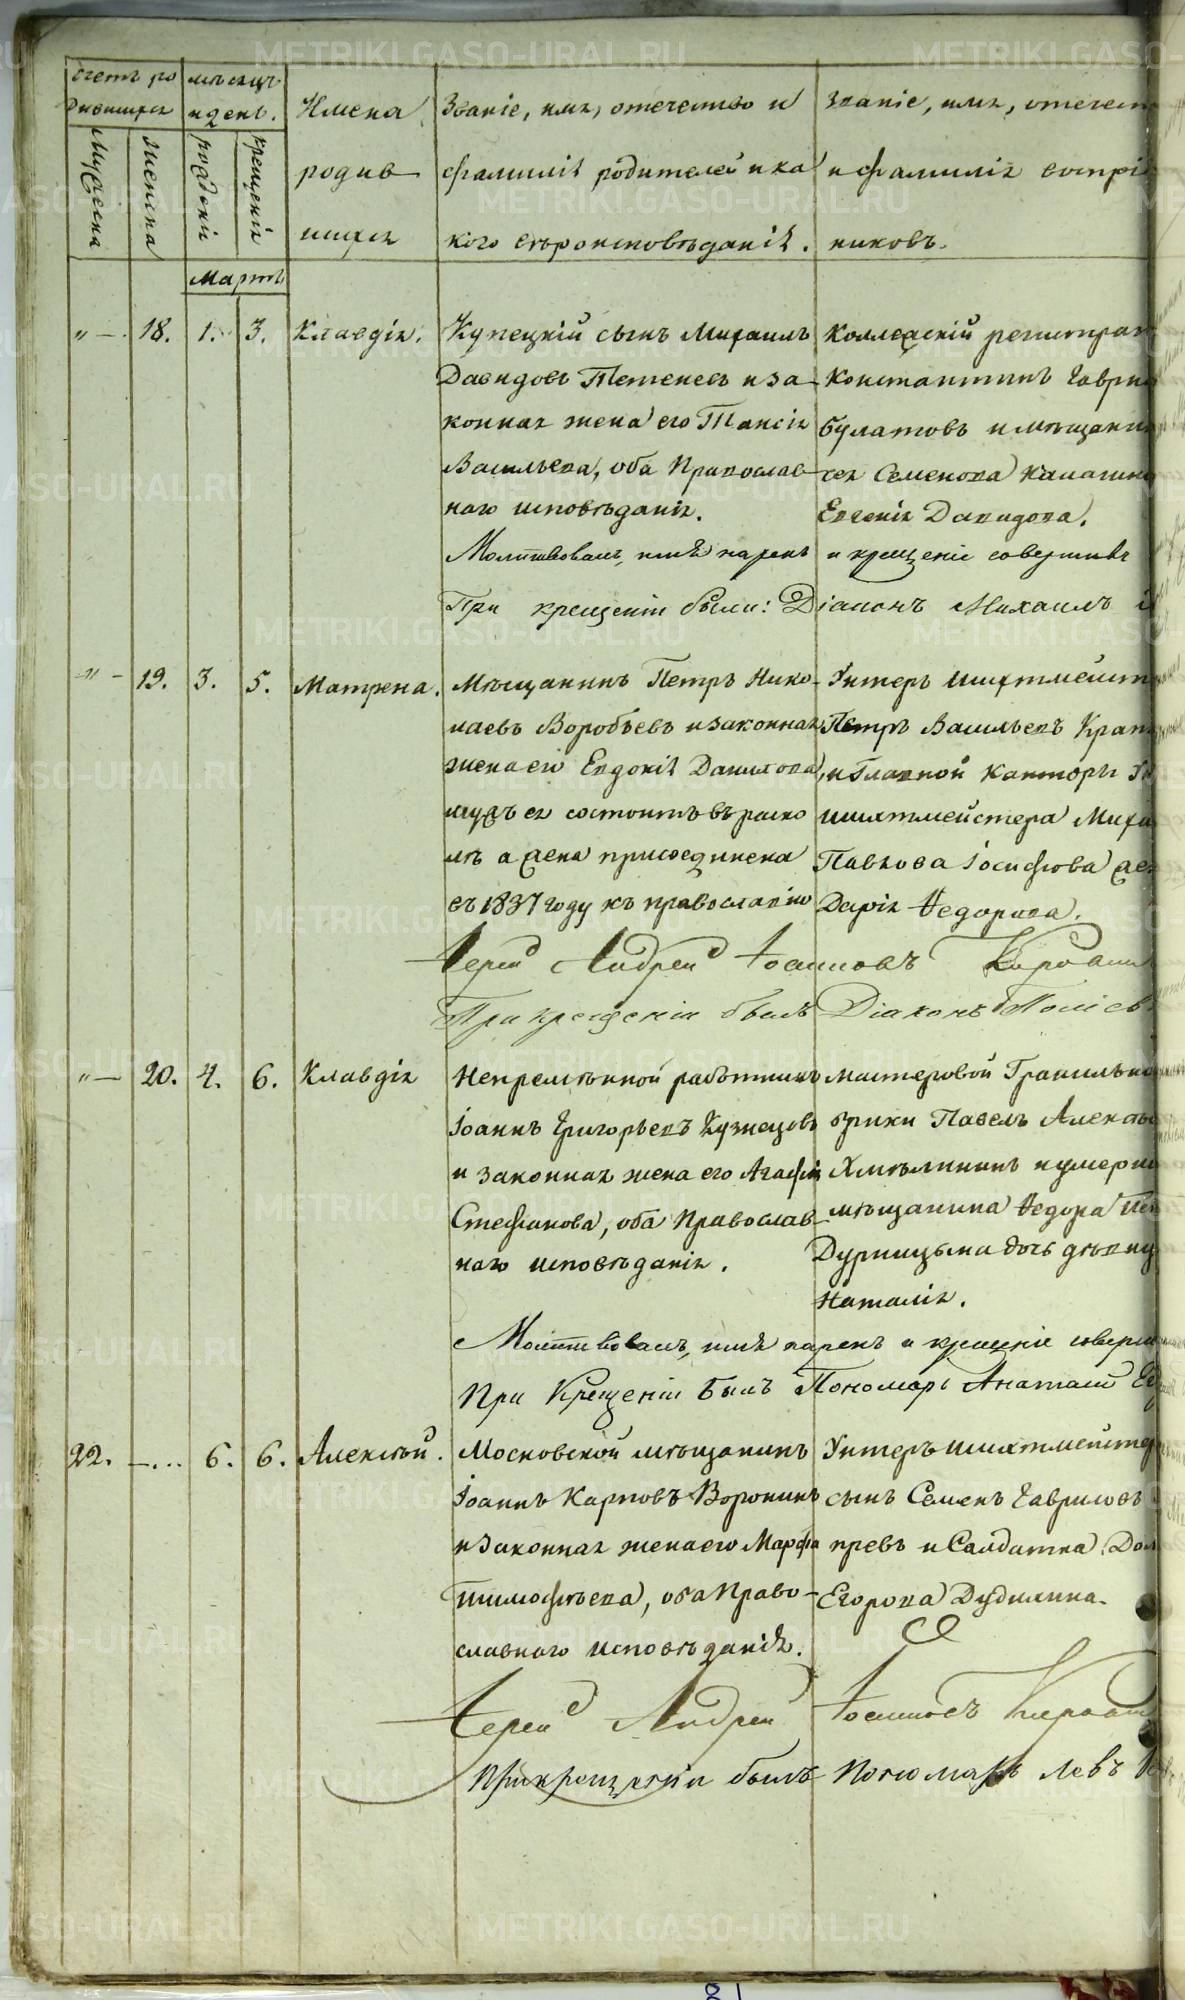 Счетъ ро
дившихся
мѣсяцъ
и день.
Мужеска
женска
рожденія
крещенія
Имена
родив
шихся
Званіе, имя, отечество и
фамилія родителей и ка
кого вѣроисповѣданія.
Званіе, имя, отечест
и фамилія воспрі
никовъ.
Мартъ
"— 18. 1. 3. Клавдія.
Купецкій сынъ Михаилъ
Давидовъ Тетеневъ и за
конная жена его Таисія
Васильева, оба Православ
наго исповѣданія.
Коллежскій регистрат
Константинъ Гаврил
Булатовъ и мѣщанин
Семенова
Евгенія Давидова.
Молитвовалъ, имя нарекъ и крещеніе совершилъ
При крещеніи были: Діаконъ Михаилъ
"— 19. 3. 5. Матрена.
Мѣщанинъ Петръ Нико-
лаевъ Воробьевъ и законная
жена его Евдокія Данилова,
мужъ ея состоитъ въ раско
лѣ а жена присоединена
въ 1837 году къ православію
Унтеръ шихтмейст
Петръ Васильевъ
и Главной Канторы
шихтмейстера Миха
Павлова Іосифова жен
Дарія Ѳедорова.
Іерей Андрей Іоанновъ
При крещеніи былъ Діаконъ
"— 20. 4. 6. Клавдія
Непремѣнной работникъ
Іоаннъ Григорьевъ Кузнецовъ
и законная жена его Агафія
Стефанова, оба Православ
наго исповѣданія.
мастеровой Гранильно
брики Павелъ Алексѣ
Хмѣлининъ и умерш
мѣщанина Ѳедора
Дурницына дочь дѣвиц
Наталія.
Молитвовалъ, имя нарекъ и крещеніе соверш
При Крещеніи Былъ Пономарь
22. —... 6. 6. Алексѣй.
Московской мѣщанинъ
Іоаннъ Карповъ Воронинъ
и законная жена его Марфа
Тимофѣева, оба Право-
славнаго исповѣданія.
Унтеръ шихтмейстер
сынъ Семенъ Гавриловъ
превъ и Салдатка Дом
Егорова Дудилина.
Іерей Андрей Іоанновъ
При крещеніи былъ Пономарь Левъ
METRIKI.GASO-URAL.RU